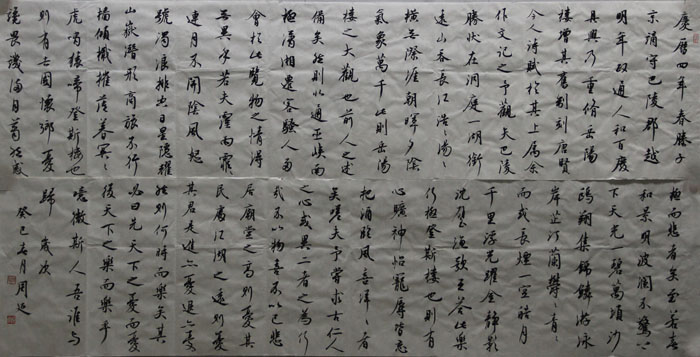 慶曆四年春滕子
京謫守巴陵郡越
明年政通人和百廢
具興乃重脩岳陽
樓增其舊制刻唐賢
今人詩賦於其上屬余
作文記之予觀夫巴陵
勝狀在洞庭一湖銜
遠山吞長江浩浩湯
橫無際涯朝暉夕陰
氣象萬千此則岳陽
樓之大觀也前人之述
備矣然則北通巫峽南
極瀟湘遷客騷人多
會於此覽物之情得
無異乎若夫霪雨霏
連月不開陰風怒
號濁浪排空日星隱耀
山嶽潛形商旅不行
檣傾楫摧薄暮冥冥
虎嘯猿啼登斯樓也
則有去國懷鄉憂
讒畏譏滿目蕭然感
極而悲者矣至若春
和景明波瀾不驚上
下天光一碧萬頃沙
鷗翔集錦鱗游泳
岸芷汀蘭鬱鬱青
而或長煙一空皓月
千里浮光躍金靜影
沉璧漁歌互答此樂
何極登斯樓也則有
心曠神怡寵辱皆忘
把酒臨風喜洋洋者
矣嗟夫予嘗求古仁人
之心或異二者之為何
哉不以物喜不以己悲
居廟堂之高則憂其
民處江湖之遠則憂
其君是進亦憂退亦憂
然則何時而樂耶其
必曰先天下之憂而憂
後天下之樂而樂乎
噫微斯人吾誰與
歸 歲次
癸巳春月周